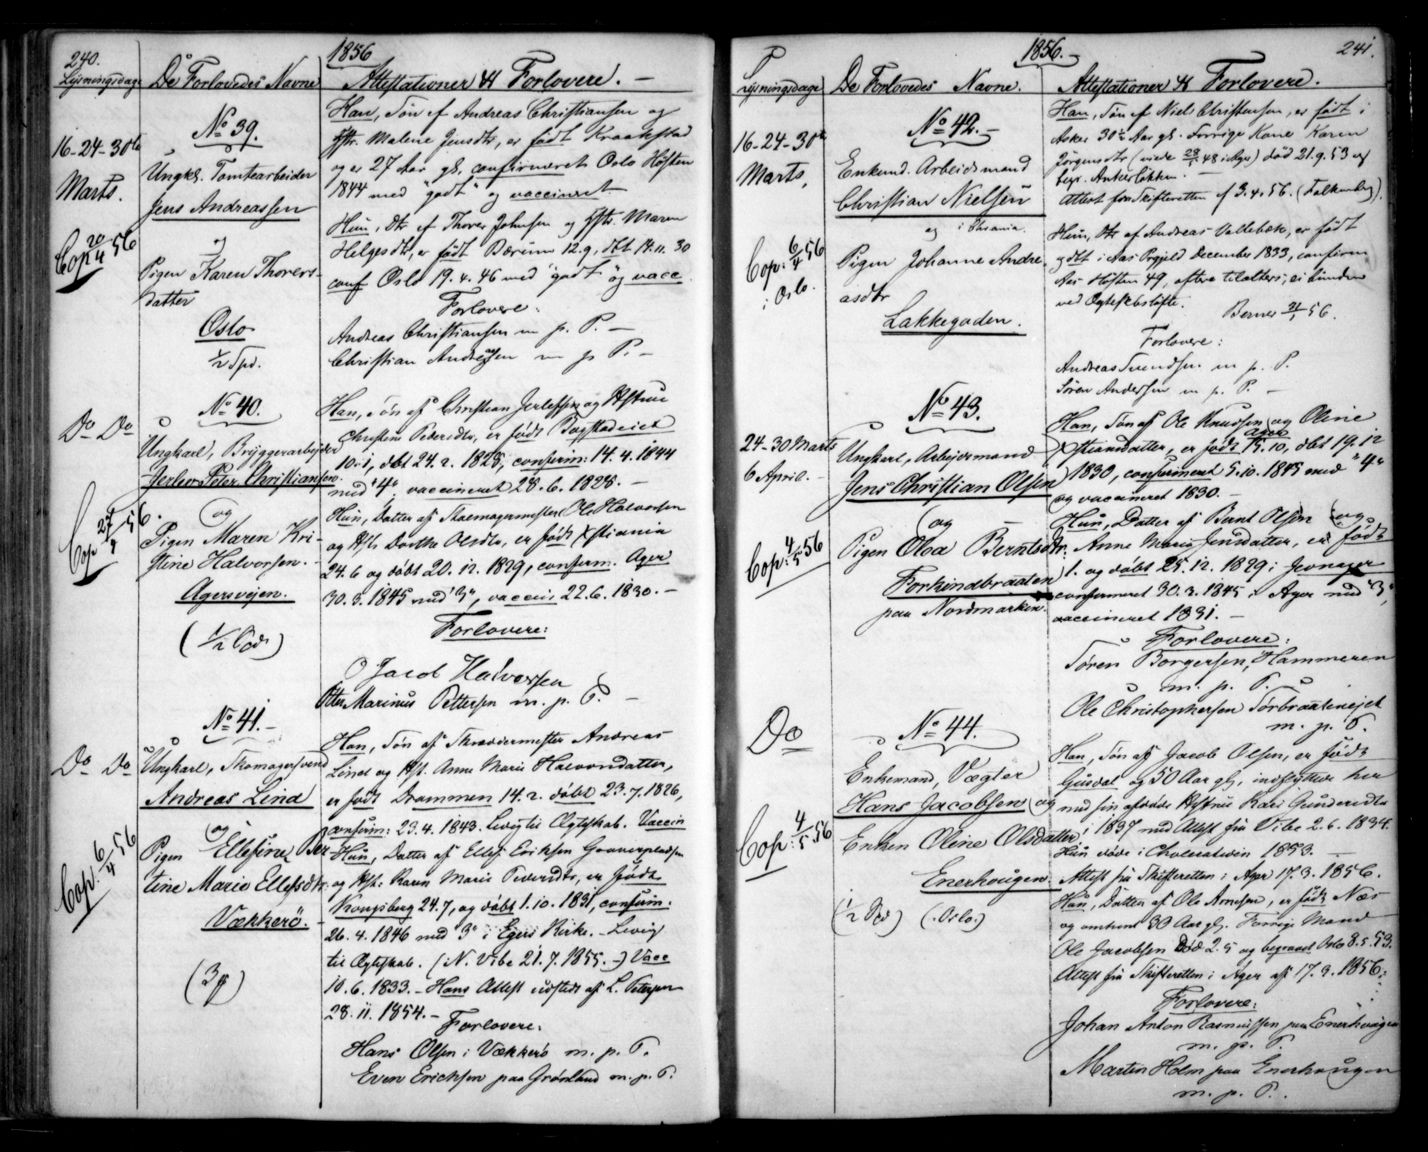 240.
1856
Lysningsdage
De Forlovedes Navne
Attestationer & Forlovere. —
16-24-30te
Marts.
Cop 20/4 56
No 39.
Ungk. Tomtearbeider
Jens Andreassen
og
Pigen Karen Thorers-
datter
Oslo
1/2 Spd.
Han, Søn af Andreas Christiansen og
Hstr. Malene Jensdtr, er født Kraakstad
og er 27 Aar gl, confirmeret Oslo Høsten
1844 med "godt" og vaccineret
Hun, dtr af Thorer Johnsen og Hstr. Maren
Helgesdtr, er født Bærum 12.9, dbt 14.11.30
conf Oslo 19.4.46 med "godt" og vacc.
Forlovere:
Andreas Christiansen m. p. P. —
Christian Andresen m p P. —
Do Do
Cop 27/4 56.
No 40.
Ungkarl, Bryggerarbejder
Jerlov Peter Christiansen
og
Pigen Maren Kri-
stine Halvorsen.
Agersvejen.
(1/2 Ood)
Han, Søn af Christian Jerlessen og Hstrue
Christine Pedersdtr, er født Bogstadeiet
10.1, dbt 24.2.1828, confirm: 14.4.1844
med "4", vaccineret 28.6.1828. —
Hun, Datter af Skomagermester Ole Halvorsen
og Hst. Dorthe Olsdtr, er født Xstiania
24.6 og døbt 20.12.1829, confirm. Ager
30.3.1845 med "3", vaccin 22.6.1830. —
Forlovere:
O Jacob Halvorsen
Otter Marinus Pettersen m. p. P. —
Do Do
Cop. 6/4 56
No 41. —
Ungkarl, Skomagersvend
Andreas Lind
og
Pigen Ellefine Ber
tine Marie Ellefsdtr.
Vækkerö.
(3 )
Han, Søn af Skræddermester Andreas
Lind og Hst. Anne Marie Halvorsdatter,
er født Drammen 14.2. døbt 23.7.1826,
confirm: 23.4.1843. Ledig til Ægteskab. Vaccin
Hun, Datter af Ellef Eriksen Graaverpladsen
og Hst. Karen Marie Pedersdtr, er født
Kongsberg 24.7, og døbt 1.10.1831, confirm.
26.4.1846 med 3" i Egers Kirke. — Ledig
til Ægteskab. (N. Vibe 21.7.1855. —) Vacc
10.6.1833. — Hans Attest udstedt af L. Petersen
28.11.1854. —
Forlovere:
Hans Olsen i Vækkerö m. p. P.
Even Erichsen paa Grønland m. p. P.
1856.
241.
Lysningsdage
De Forlovedes Navne.
Attestationer & Forlovere.
16-24-30te
Marts.
Cop: 6/4 56
i Oslo.
No 42. —
Enkemd. Arbeidsmand
Christian Nielsen
og i Chrania.
Pigen Johanne Andre-
asdtr
Lakkegaden.
Han, Søn af Niels Christensen, er født i
Asker 30 1/2 Aar gl. Forrige Kone Karen
Jörgensdtr (viede 28/1 48 i Ager) død 21.9.53 og
begr. Ankerløkken. —
Attest fra Skifteretten af 3.4.56. (Falkenberg).
Hun, dtr af Andreas Vallebek, er født
og dt i Aas Prgjeld December 1833, confirm
Aas Høsten 49, oftere tilalters, ei bunden
ved Ægteskabsløfte.
Berner 21/1 56.
Forlovere:
Andreas Svendsen m p. P.
Sören Andersen m p. P. —
24-30 Marts
6 April.
Cop: 4/5 56
No 43.
Ungkarl, Arbejdsmand
Jens Christian Olsen
og
Pigen Olva Berntsdtr.
Forkindbraaten
paa Nordmarken.
Han, Søn af Ole Knudsen og Oline
Xstiansdatter, er født Ager 15.10, dbt 19.12
1830, confirmeret 5.10.1845 med "4"
og vaccineret 1830. —
Hun, Datter af Bernt Olsen og
Anne Marie Jensdatter, er født
1. og døbt 25.12.1829 i Jevnager
confirmeret 30.3.1845 i Ager med "3",
vaccineret 1831. —
Forlovere:
Søren Borgersen, Hammeren
m. p. P.
Ole Christophersen Torbraateiejet
m. p. P.
Do
Cop: 4/5 56
No 44. —
Enkemand, Vægter
Hans Jacobsen og
Enken Oline Olsdatter
Enerhougen.
(1/2 Spd) (. Oslo.)
Han, Søn af Jacob Olsen, er født
Gusdal og 50 Aar gl, indflyttet her
med sin afdøde Hstrue Kari Gundersdtr
i 1837 med Attest fra Vibe 2.6.1834.
Hun døde i Choleratiden 1853. —
Attest fra Skifteretten i Ager 17.3.1856.
Hun, Datter af Ole Arnesen, er født Næs
og omtrent 30 Aar gl, Forrige Mand
Ole Jacobsen døde 2.5 og begravet Oslo 8.5.53.
Attest fra Skifteretten i Ager af 17.3.1856.
Forlovere:
Johan Anton Rasmussen paa Enerhougen
m. p. P.
Martin Holm paa Enerhougen
m. p. P.